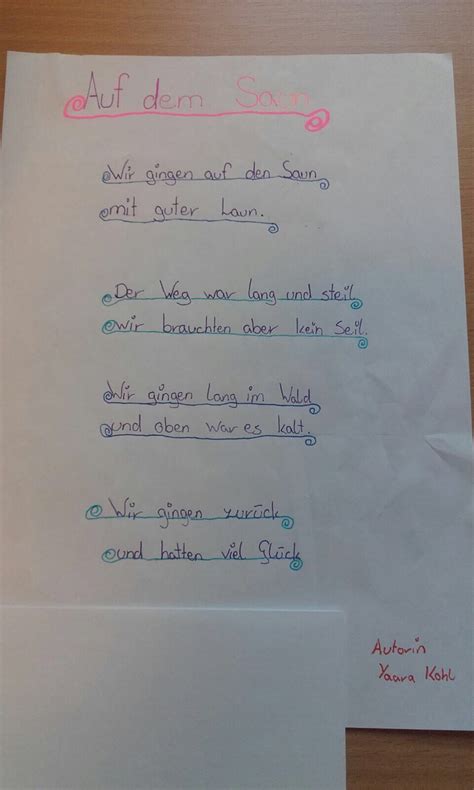 Auf dem Saun
Wir gingen auf den Saun
mit guter Laun.
Der Weg war lang und steil
wir brauchten aber kein Seil.
Wir gingen lang im Wald
und oben war es kalt.
Wir gingen zurück
und hatten viel Glück
Autorin
Yaara Kohl